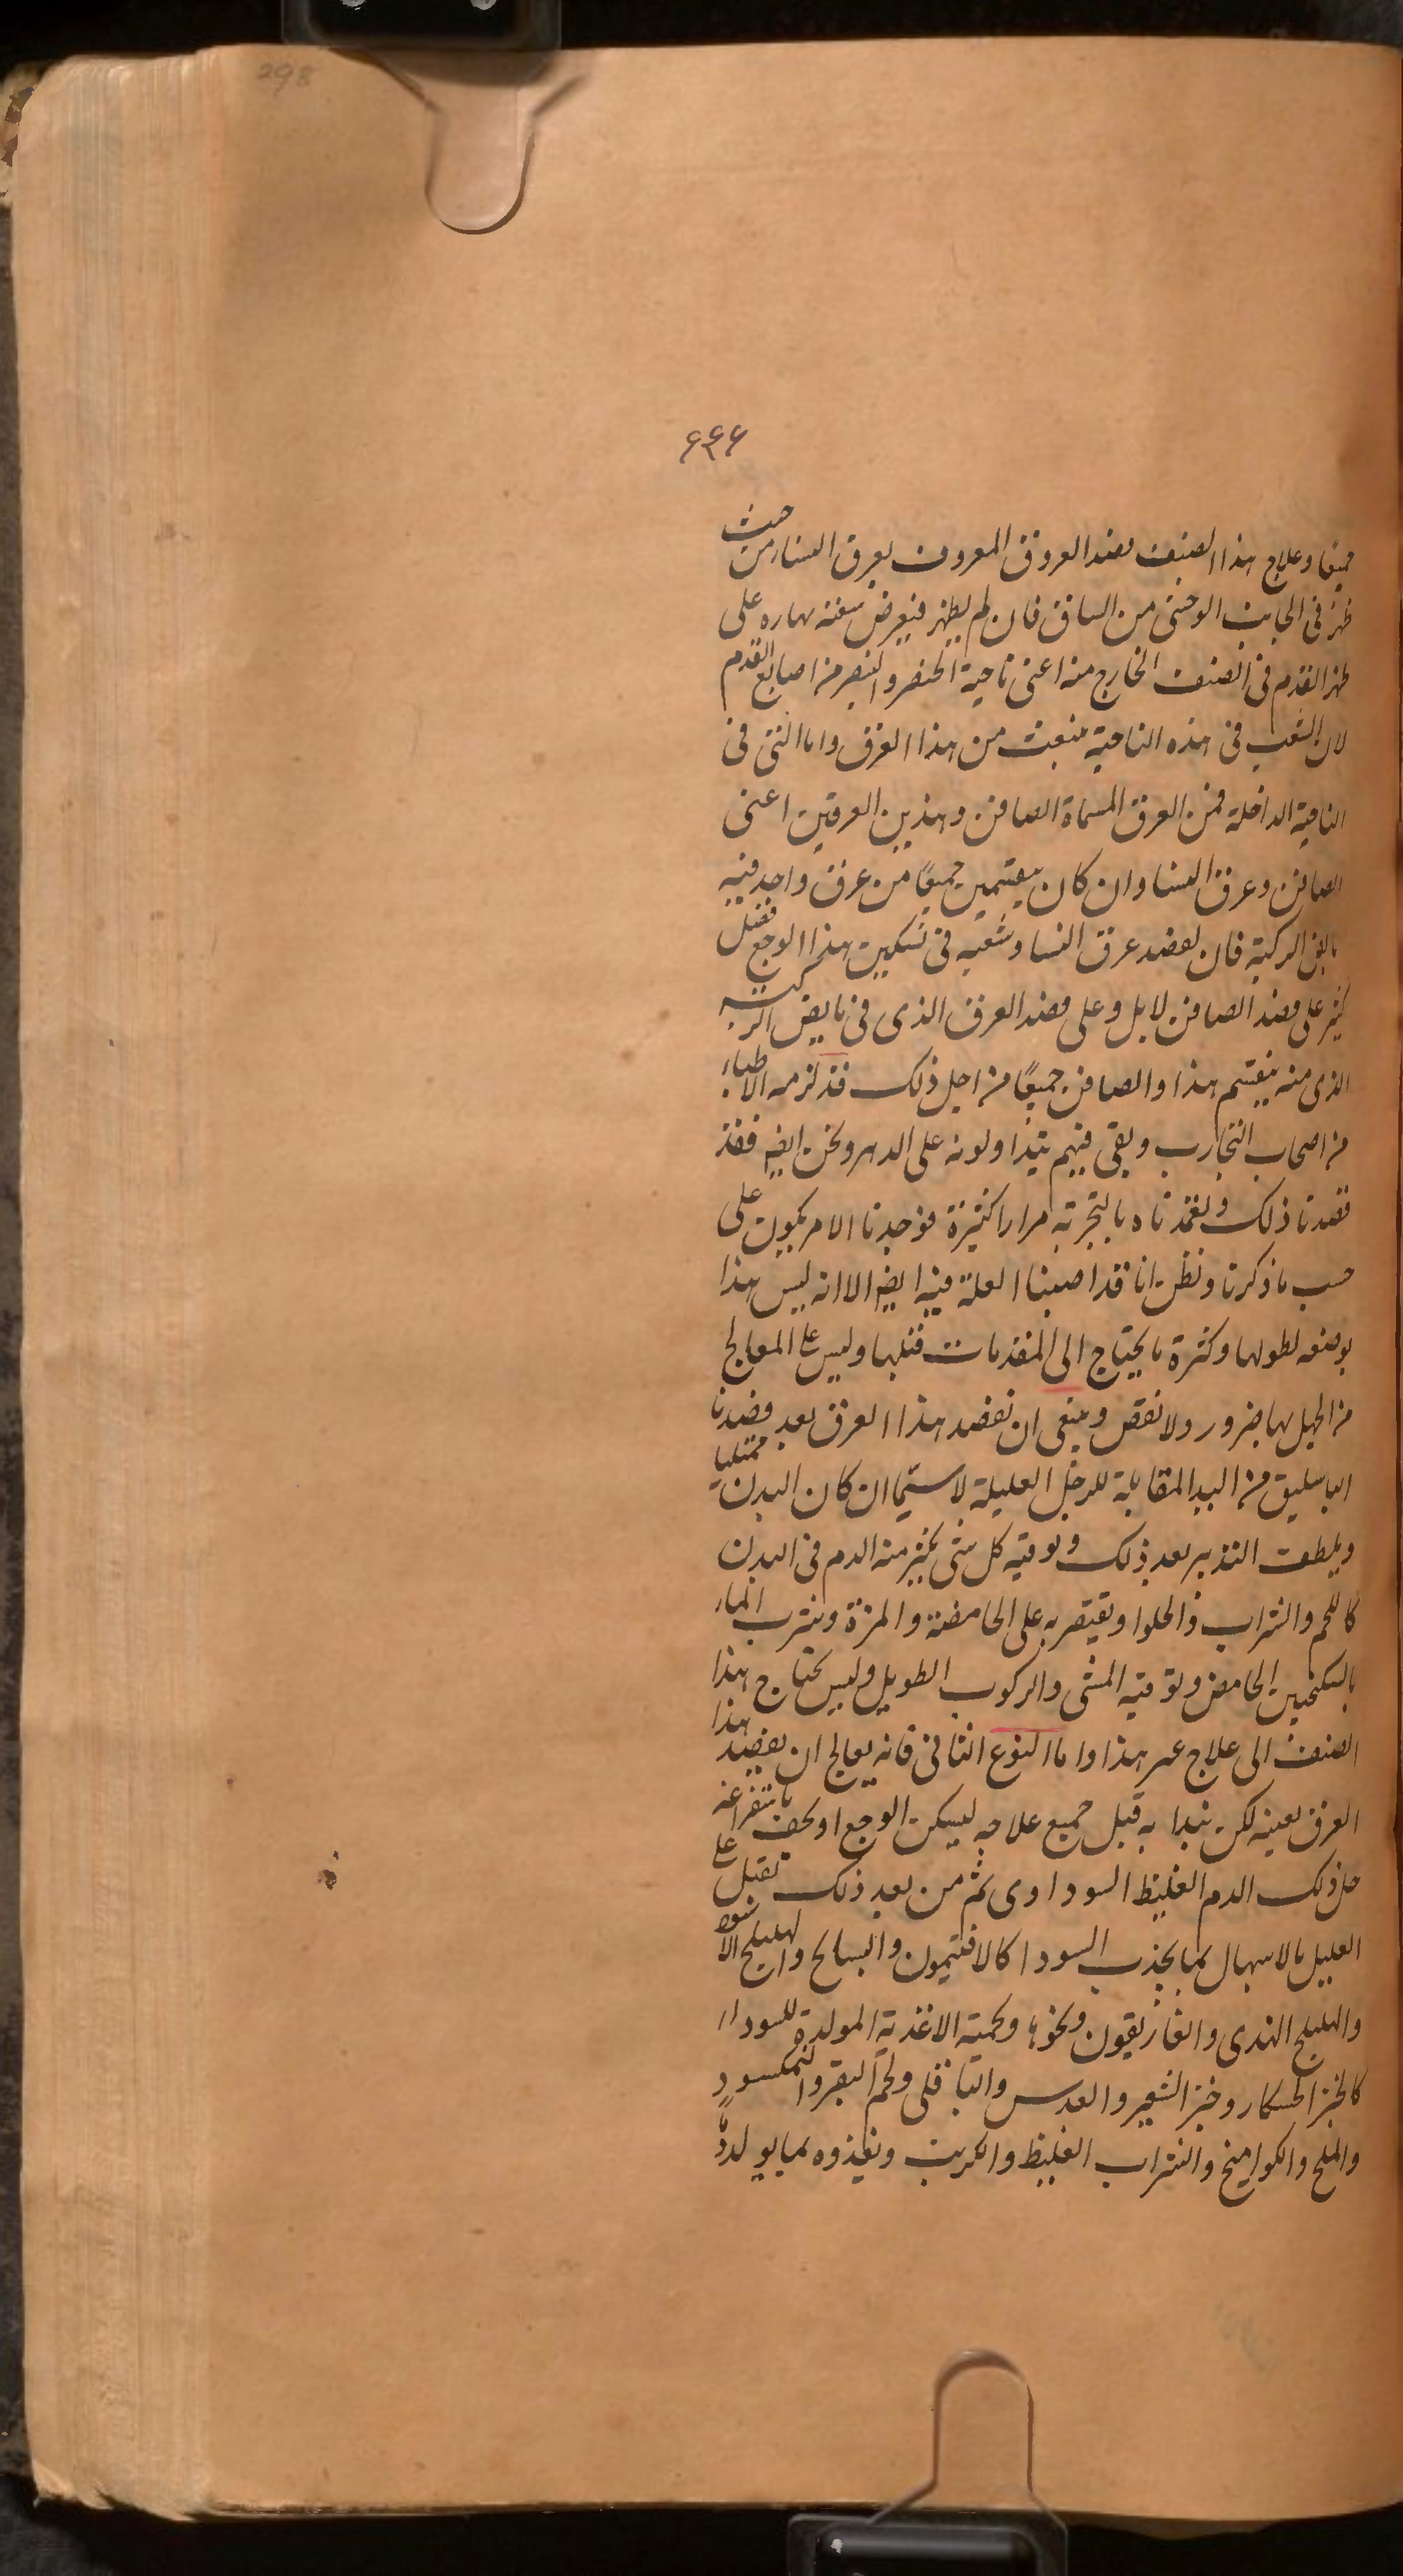 298
۶۴۶
جميعًا وعلاج هذا الصنف فصد العروق المعروف بعرق النسا من حيث
ظهر فى الجانب الوحشى من الساق فان لم يظهر فيعرض على
ظهر القدم فى الصنف الخارج منه اعنى ناحية الخنصر والبنصر من اصابع القدم
لان الشعب فى هذه الناحية منبعث من هذا العرق واما التى فى
الناحية الداخلة فمن العرق المسماة الصافن وهذين العرقين اعنى
الصافن وعرق النسا وان كان يقتسمين جميعًا من عرق واحد فيه
مابض الركبة فان لفصد عرق النسا وشعبه فى تسكين هذا الوجع فضل
كثير على فصد الصافن لا بل وعلى فصد العرق الذى فى مابض الركبة
الذى منه ينقسم هذا والصافن جميعًا من اجل ذلك قد لزمه الاطباء
من اصحاب التجارب وبقى فيهم يتداولونه على الدهر ونحن ايضا فقد
فصدنا ذلك وتعمدناه بالتجربة مرارا كثيرة فوجدنا الامر يكون على
حسب ما ذكرنا ونظن انا قد اصبنا العلة فيه ايضا الا انه ليس هذا
بوضعه لطولها وكثرة ما يحتاج الى المقدمات قبلها وليس على المعالج
من الجهل بها ضرور ولا نقص وينبغى ان تفصد هذا العرق بعد فصدنا
الباسليق من اليد المقابلة للرجل العليلة لا سيما ان كان البدن ممتليا
ويلطف التدبير بعد ذلك وتوقيه كل شى يكثر منه الدم فى البدن
كاللحم والشراب والحلوا ويقتصر به على الحامضة والمزة وشرب الماء
بالسكنجبين الحامض وتوقيه المشى والركوب الطويل وليس يحتاج هذا
الصنف الى علاج غير هذا واما النوع الثانى فانه يعالج ان يفصد هذا
العرق بعينه لكن نبدا به قبل جميع علاجه ليسكن الوجع او يخف باستفراغه
من ذلك الدم الغليظ السوداوى ثم من بعد ذلك تقبل على
العليل بالاسهال بما يجذب السودا كالافتيمون والبسايج والهليلج الاسود
والهليلج الهندى والغاريقون ونحوه وتحميه الاغذية المولدة للسوداء
كالخبز الخشكار وخبز الشعير والعدس والباقلى ولحم البقر والنمكسود
والملح والكواميخ والشراب الغليظ والكرنب وتغذوه بما يولد